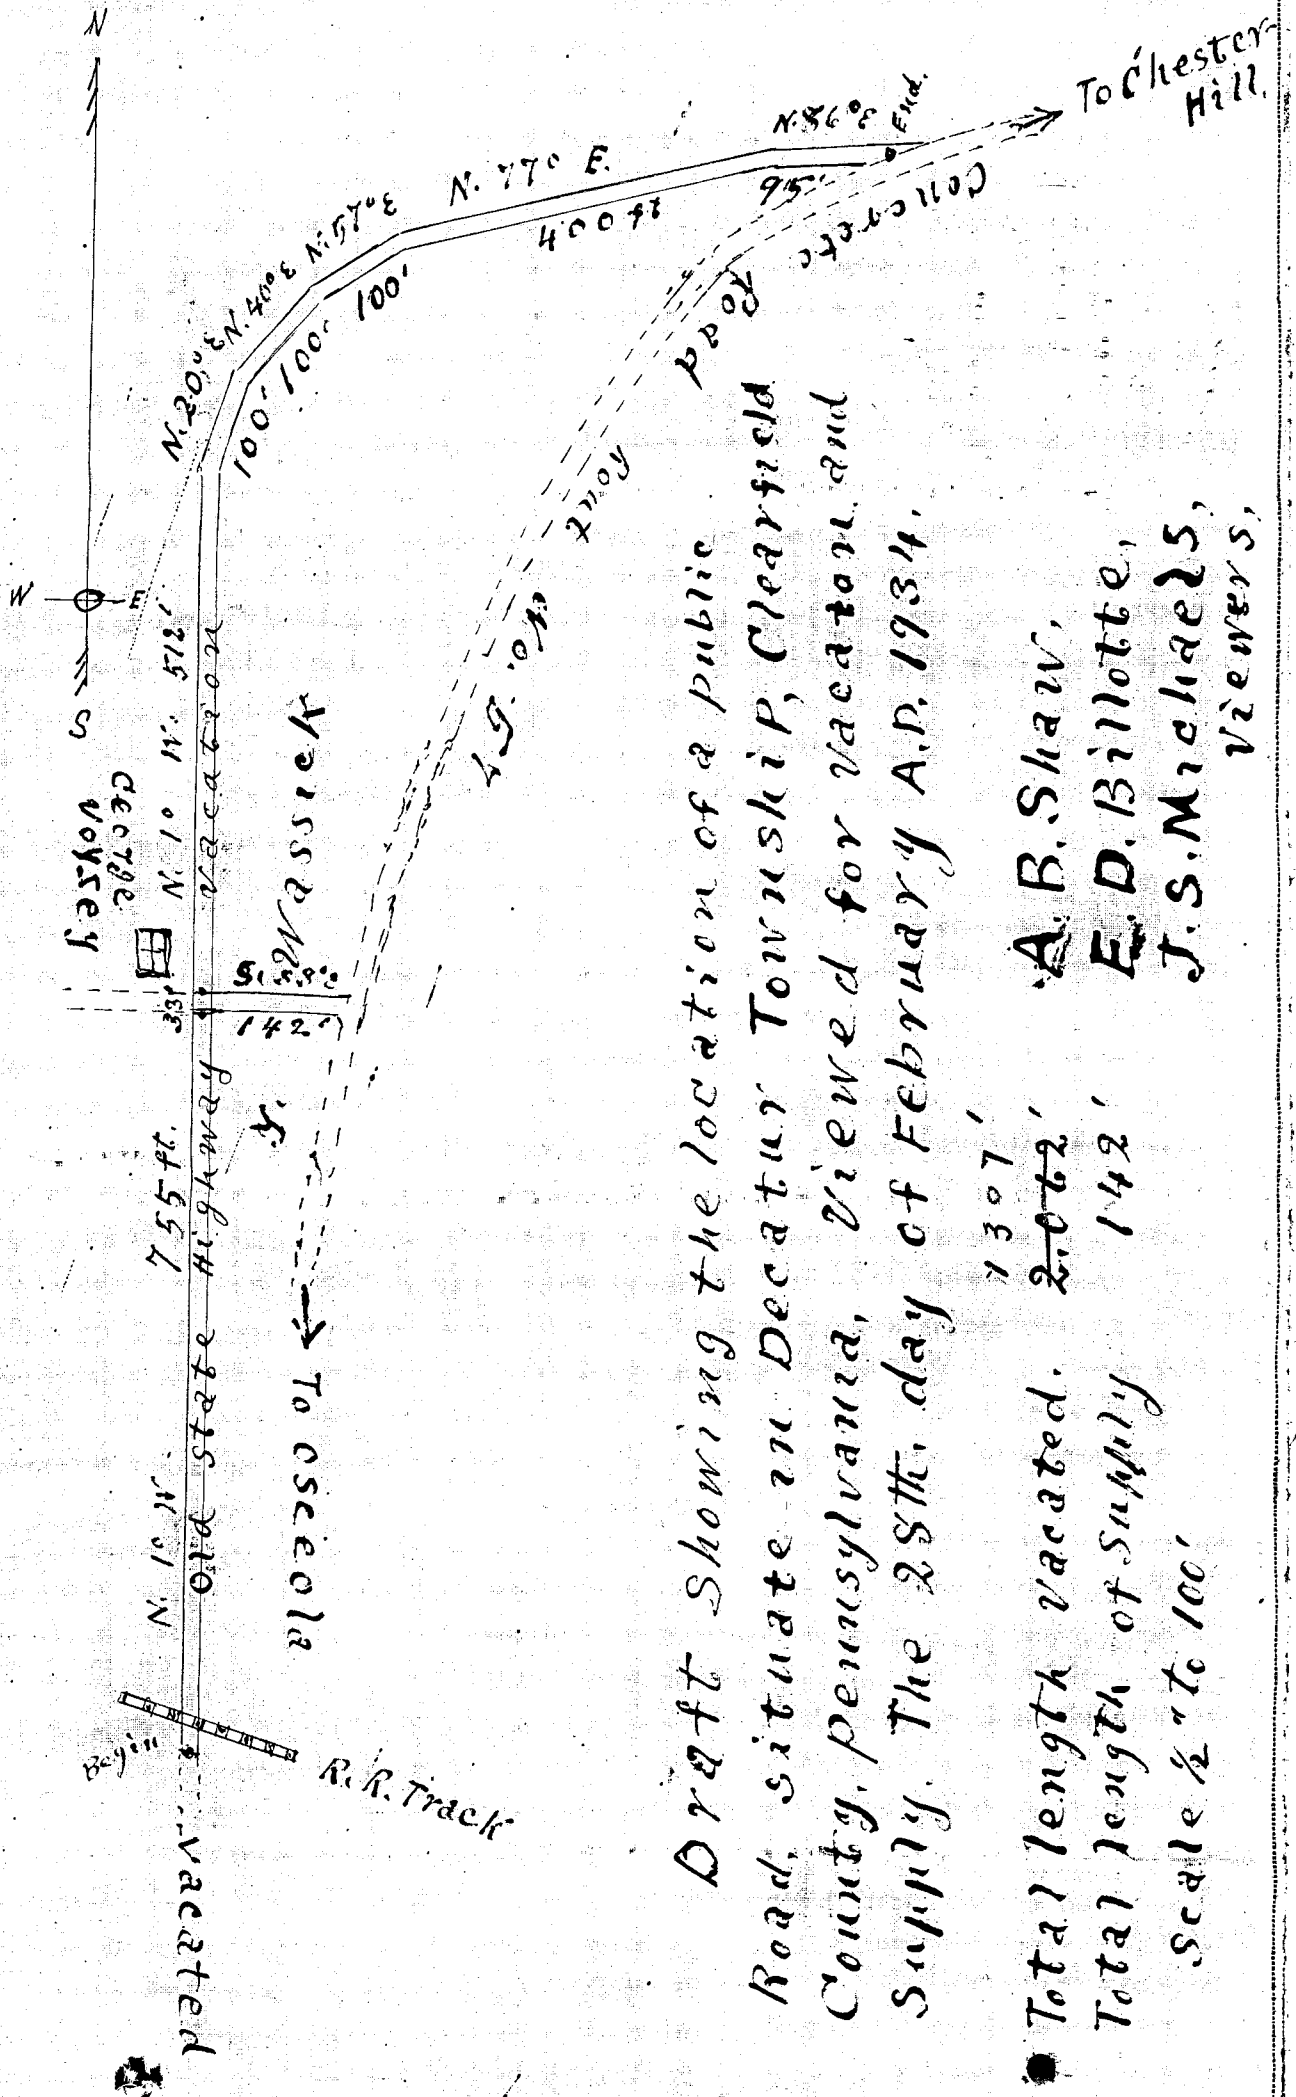 N
W
E
S
To Chester
Hill.
N. 86° E
End.
95'
N. 77° E.
400 ft
N. 57° E
100'
N. 40° E
100'
N. 20° E
100'
Concrete
Road
Route
No. 57
N. 1° W. 512'
vacation
George
Voyzey
Wassick
33'
S. 88° E
142'
755 ft.
N. 1° W
Old State Highway
To Osceola
Begin
R. R. Track
vacated
Draft Showing the location of a public
Road, situate in Decatur Township, Clearfield
County, Pennsylvania, Viewed for vacaton and
Supply. The 28th. day of February A.D. 1934.
1307'
Total length vacated. 2.062'
Total length of Supply 142'
Scale ½" to 100'
A. B. Shaw,
E. D. Billotte,
J. S. Michaels,
Viewers,